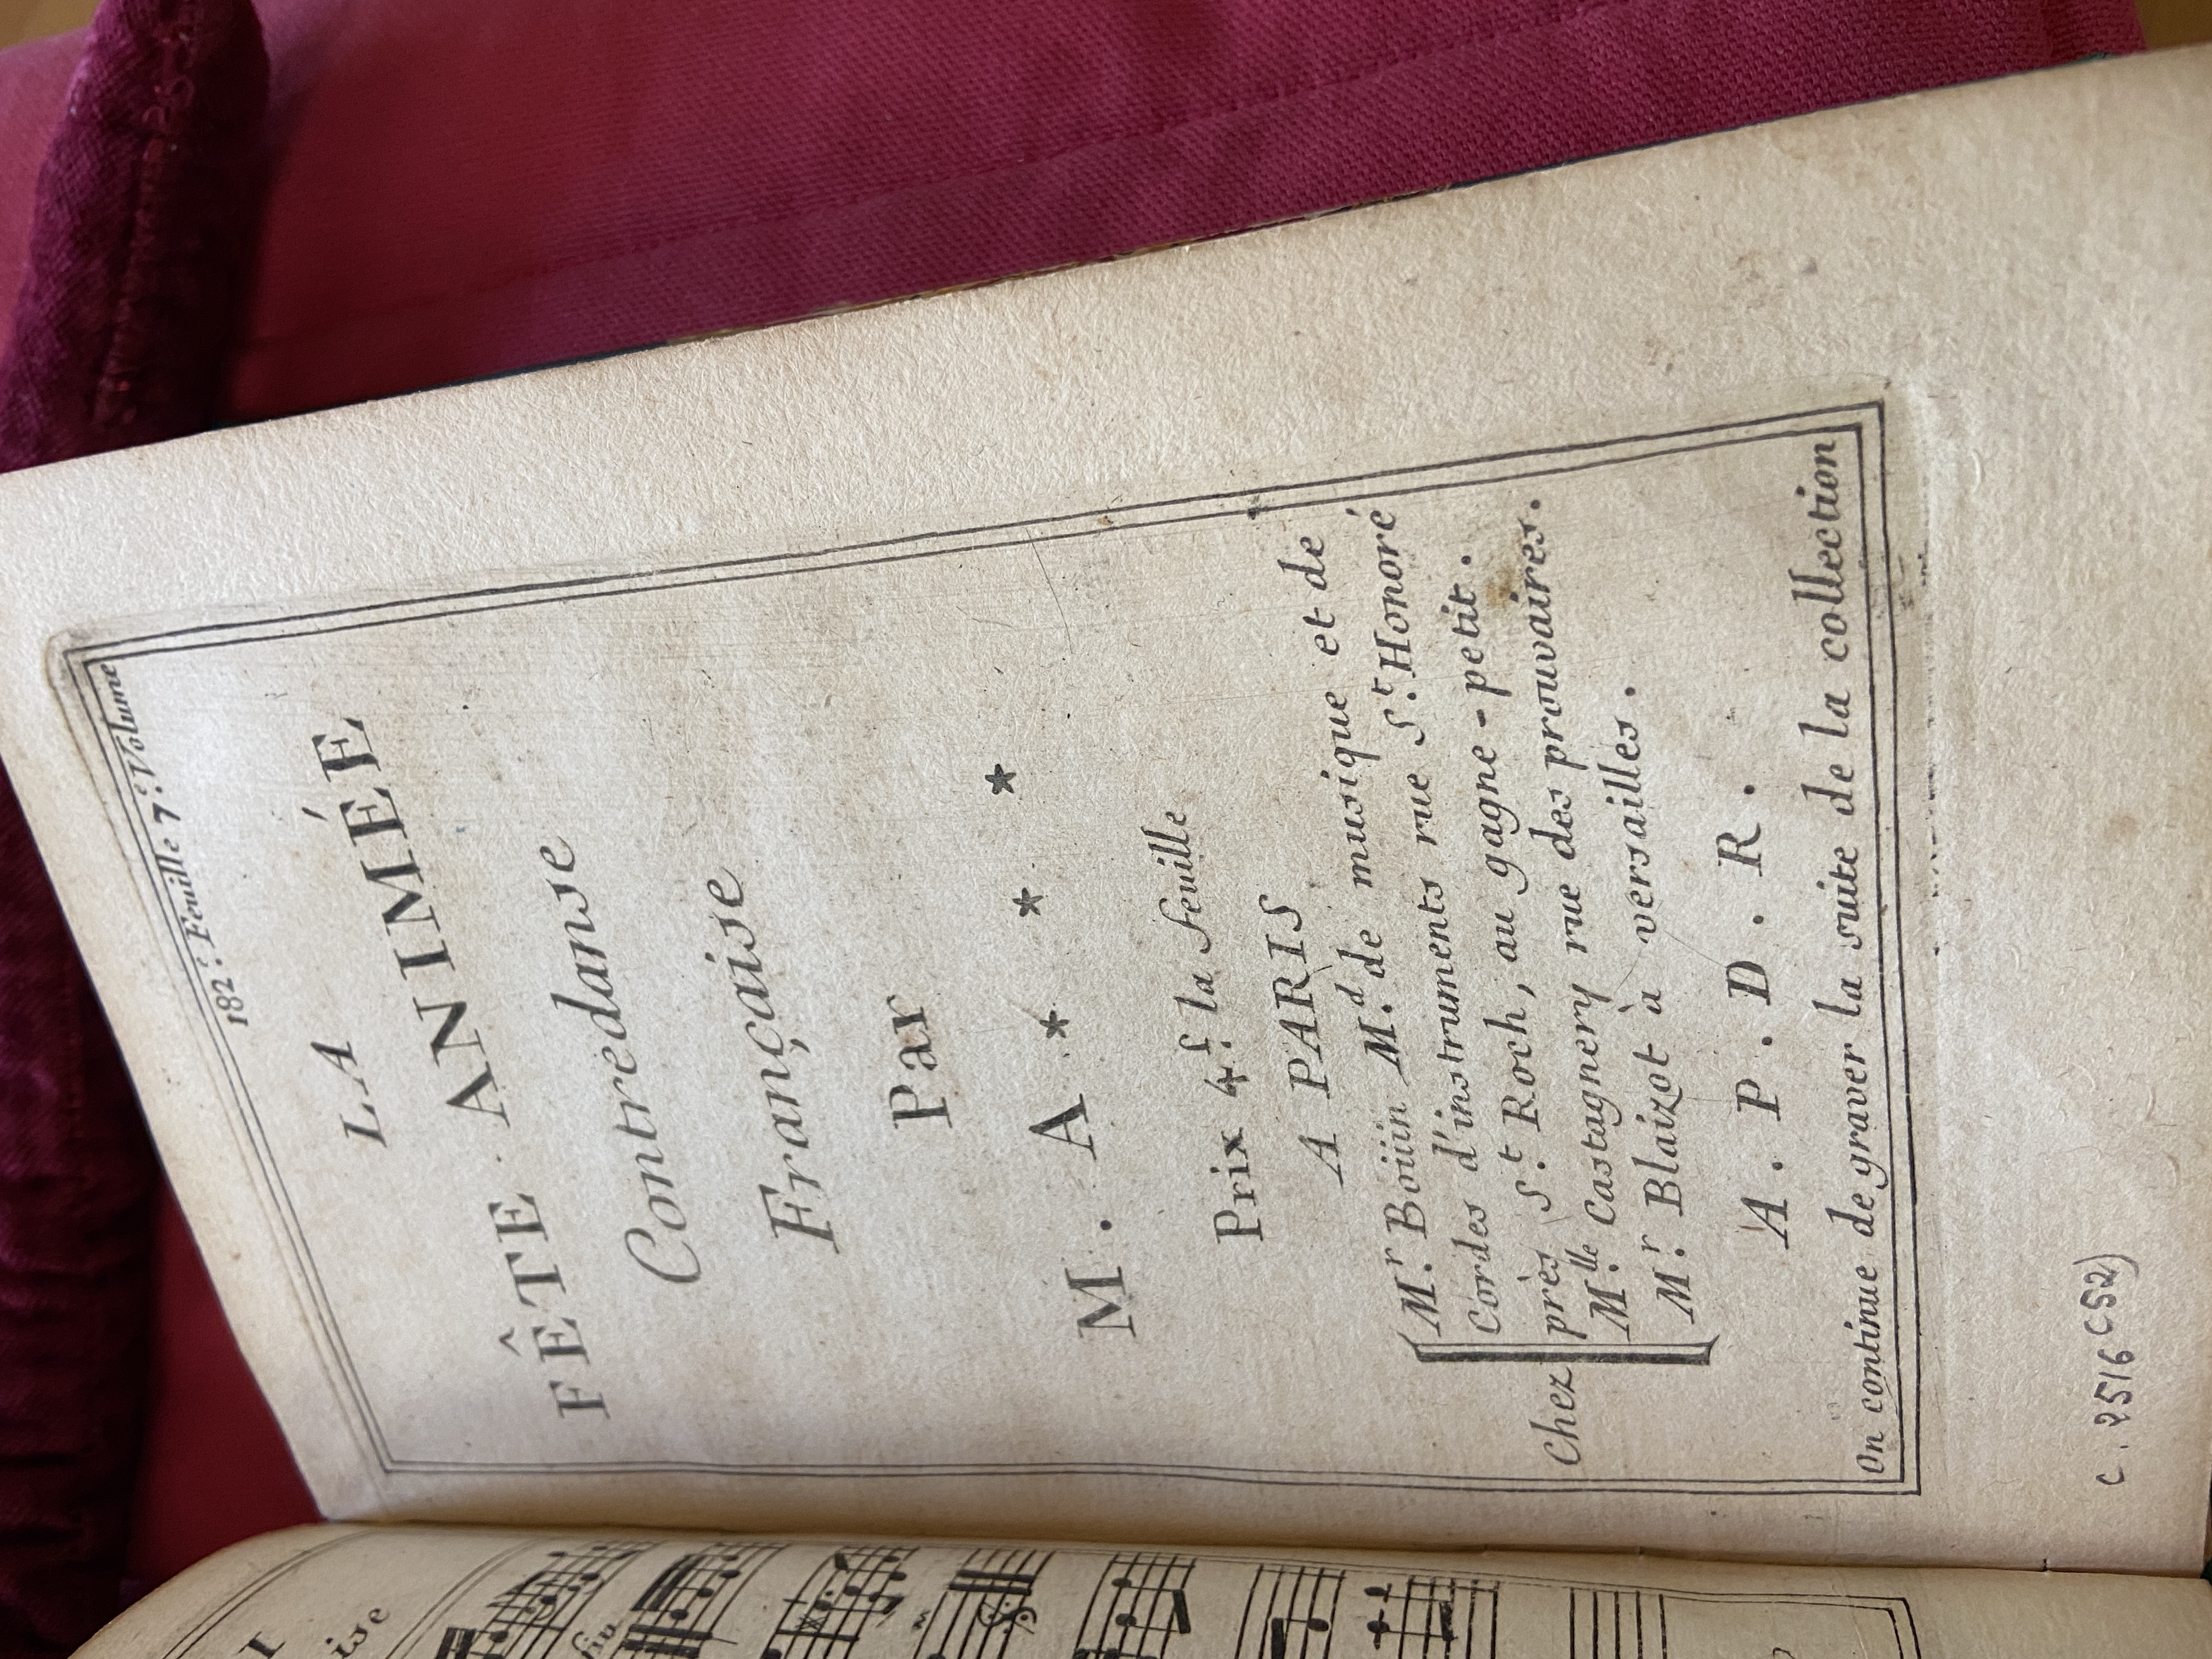 182.e Feuille 7.e Volume
LA
FÊTE ANIMÉE
Contredanse
Française
Par
M. A * * *
Prix 4.f la feuille
A PARIS
Chez
M.r Boüin M.d de musique et de
Cordes d'instruments rue S.t Honoré
près S.t Roch, au gagne-petit.
M.lle Castagnery rue des prouvaires.
M.r Blaizot à versailles.
A. P. D. R.
On continue de graver la suite de la collection
C. 2516 (52)
I
ise
fin